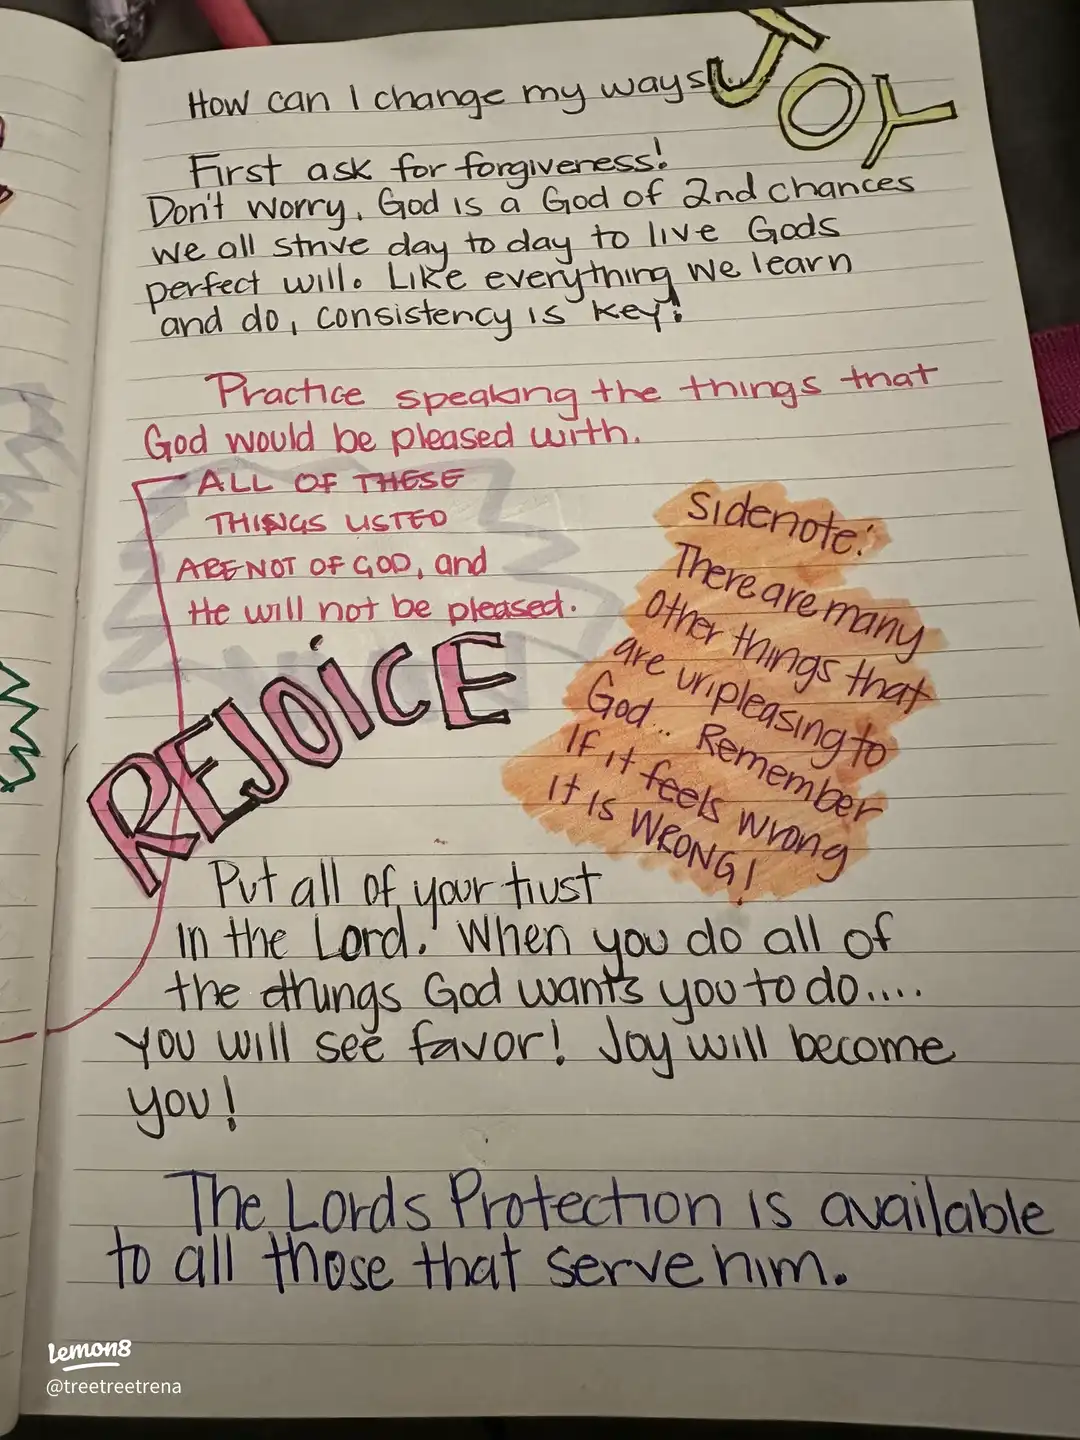 JOY
How can I change my ways
First ask for forgiveness!
Don't worry, God is a God of 2nd chances
we all strive day to day to live Gods
perfect will. Like everything we learn
and do, consistency is key!
Practice speaking the things that
God would be pleased with.
ALL OF THESE
THINGS LISTED
ARE NOT OF GOD, and
He will not be pleased.
Sidenote:
There are many
Other things that
are unpleasing to
God.. Remember
If it feels wrong
It Is WRONG!
REJOICE
Put all of your trust
in the Lord! When you do all of
the things God wants you to do....
You will see favor! Joy will become
you!
The Lords Protection is available
to all those that serve him.
Lemon8
@treetreetrena